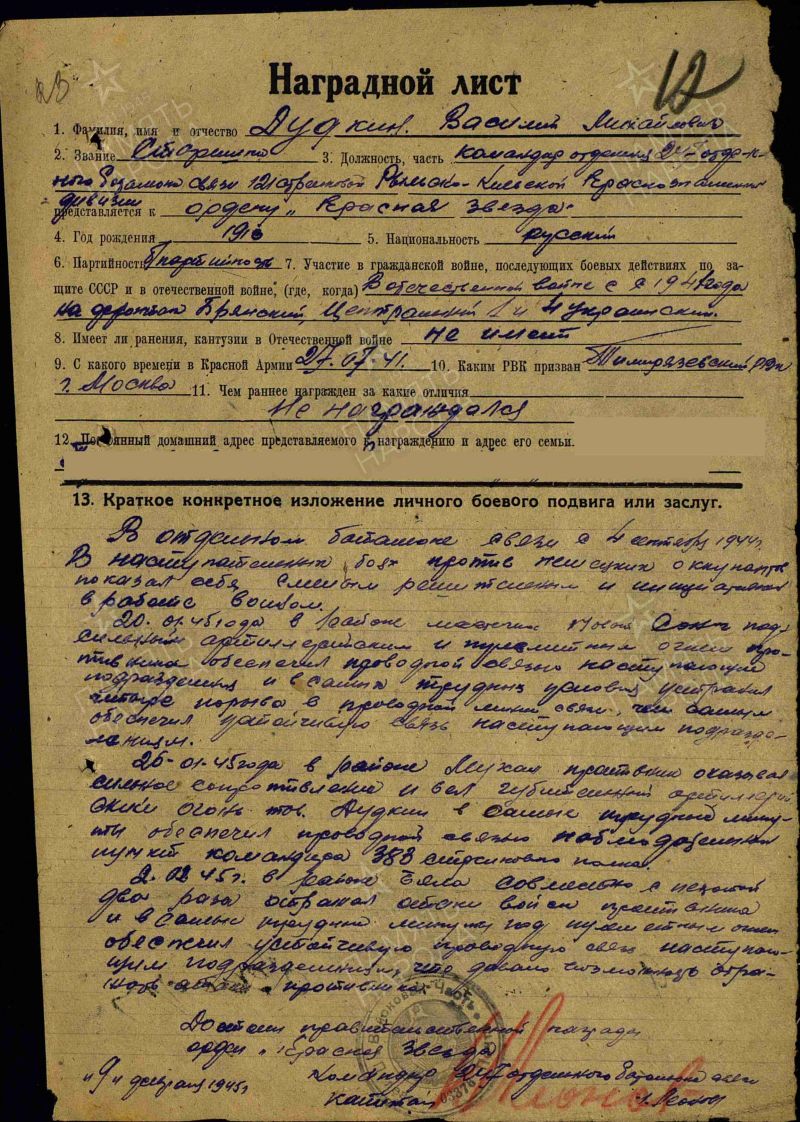 12
Наградной лист
1. Фамилия, имя и отчество Дудкин Василий Михайлович
2. Звание Старшина 3. Должность, часть командир отделения
батальона связи 121 стрелковой Рыльско-Киевской Краснознаменной
дивизии
представляется к ордену „Красная звезда"
4. Год рождения 5. Национальность русский
6. Партийность 7. Участие в гражданской войне, последующих боевых действиях по за-
щите СССР и в отечественной войне, (где, когда) В отечественной войне с 1941 года
на фронтах Брянский, Центральный 1 и 4 украинский.
8. Имеет ли ранения, кантузии в Отечественной войне не имеет
9. С какого времени в Красной Армии 27.07.41. 10. Каким РВК призван Тимирязевский РВК
г. Москва 11. Чем раннее награжден за какие отличия
Не награждался
12. Постоянный домашний адрес представляемого к награждению и адрес его семьи.
13. Краткое конкретное изложение личного боевого подвига или заслуг.
В отдельном батальоне связи с 4 сентября 1944г.
В наступательных боях против немецких оккупантов
показал себя смелым решительным и
в работе воином.
20.01.45 года в районе местечка под
сильным артиллерийским и пулеметным огнем про-
тивника обеспечил проводной связью наступающие
подразделения и в самых трудных условиях устранил
четыре порыва в проводной линии связи, чем самым
обеспечил устойчивую связь наступающим подразде-
лениям.
26-01-45 года в районе противник оказывал
сильное сопротивление и вел губительный артиллерий
ский огонь тов. Дудкин в самые трудные мину-
ты обеспечил проводной связью наблюдательный
пункт командира 383 стрелкового полка.
2.02.45г. в районе совместно с пехотой
два раза отражал атаки противника
и в самые трудные минуты под пулеметным огнем
обеспечил устойчивую проводную связь наступаю-
щим подразделениям, что давало возможность отра-
жать атаки противника.
Достоин правительственной награды
орден „Красная Звезда"
Командир отдельного батальона связи
„9" февраля 1945г капитан